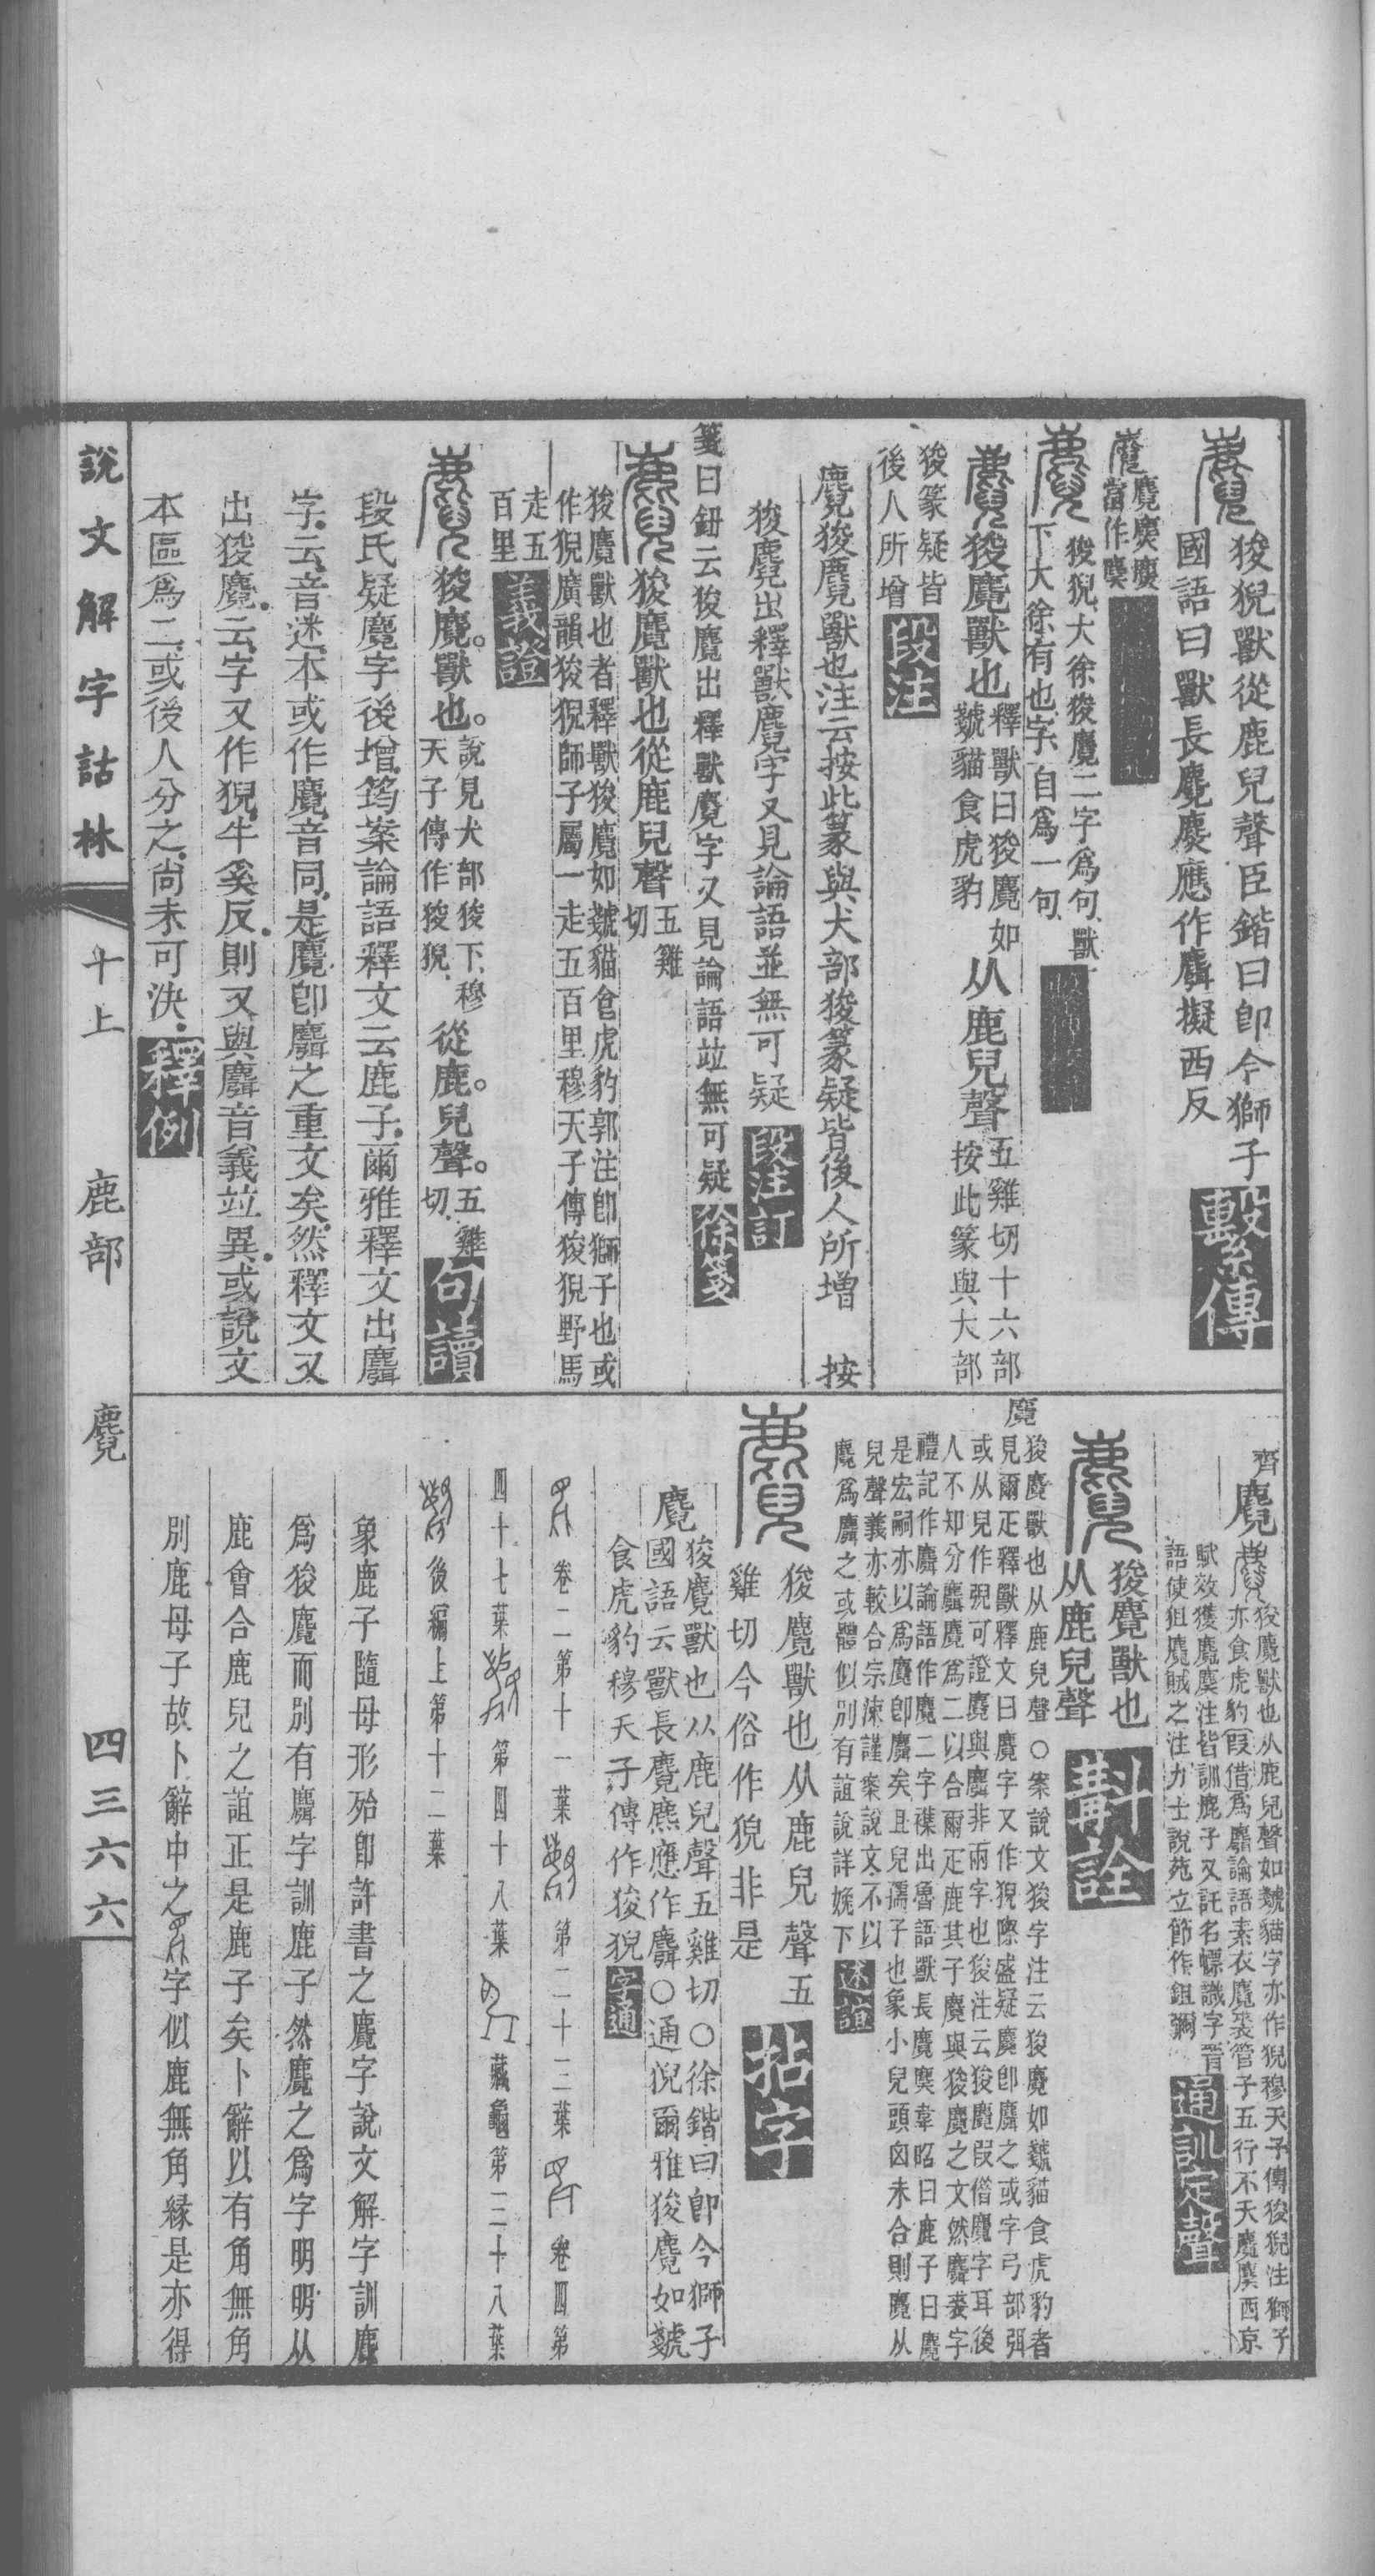 狻猊獸從鹿兒聲臣鍇曰卽今獅子
國語曰獸長麑䴠應作麛擬西反
繫傳
麑麌䴠
當作麌
狻猊大徐狻麑二字爲句獸
下大徐有也字自爲一句
狻麑獸也
釋獸曰狻麑如
虦貓食虎豹
从鹿兒聲
五雞切十六部
按此篆與犬部
狻篆疑皆
後人所增
段注
麑狻麑獸也注云按此篆與犬部狻篆疑皆後人所增 按
狻麑出釋獸麑字又見論語並無可疑
段注訂
箋曰鈕云狻麑出釋獸麑字又見論語竝無可疑
徐箋
狻麑獸也從鹿兒聲
五雞
切
狻麑獸也者釋獸狻麑如虦貓食虎豹郭注卽獅子也或
作猊廣韻狻猊師子屬一走五百里穆天子傳狻猊野馬
走五
百里
義證
狻麑獸也
說見犬部狻下穆
天子傳作狻猊
從鹿兒聲
五雞
切
句讀
段氏疑麑字後增筠案論語釋文云鹿子爾雅釋文出麛
字云音迷本或作麑音同是麑卽麛之重文矣然釋文又
出狻麑云字又作猊牛奚反則又與麛音義竝異或說文
本區爲二或後人分之尚未可決
釋例
說文解字詁林
十上
鹿部
麑
四三六六
齊
麑
狻麑獸也从鹿兒聲如虦貓字亦作猊穆天子傳狻猊注獅子
亦食虎豹叚借爲麛論語素衣麑裘管子五行不夭麑麌西京
賦效獲麑麌注皆訓鹿子又託名幖識字晉
語使狙麑賊之注力士說苑立節作鉏彌
通訓定聲
狻麑獸也
从鹿兒聲
斠詮
麑
狻麑獸也从鹿兒聲○案說文狻字注云狻麑如虦貓食虎豹者
見爾疋釋獸釋文曰麑字又作猊際盛疑麑卽麛之或字弓部弭
或从兒作𢏺可證麑與麛非兩字也狻注云狻麑叚偕麑字耳後
人不知分麛麑爲二以合爾疋鹿其子麑與狻麑之文然麛裘字
禮記作麛論語作麑二字襍出魯語獸長麑麌韋昭曰鹿子曰麑
是宏嗣亦以爲麑卽麛矣且兒孺子也象小兒頭囟未合則麑从
兒聲義亦較合宗涑謹案說文不以
麑爲麛之或體似別有誼說詳㝃下
述誼
狻麑獸也从鹿兒聲五
雞切今俗作猊非是
拈字
麑
狻麑獸也从鹿兒聲五雞切○徐鍇曰卽今獅子
國語云獸長麑䴠應作麛○通猊爾雅狻麑如虦
食虎豹穆天子傳作狻猊
字通
卷二第十一葉 第二十三葉 卷四第
四十七葉 第四十八葉 藏龜第三十八葉
後編上第十二葉
象鹿子隨母形殆卽許書之麑字說文解字訓麑
爲狻麑而別有麛字訓鹿子然麑之爲字明明从
鹿會合鹿兒之誼正是鹿子矣卜辭以有角無角
別鹿母子故卜辭中之 字似鹿無角緣是亦得